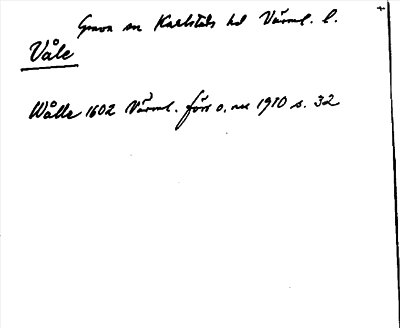 Grava sn Karlstads hd Värml. l.
Våle
Wålle 1602 Värml. förr o. nu 1910 s. 32